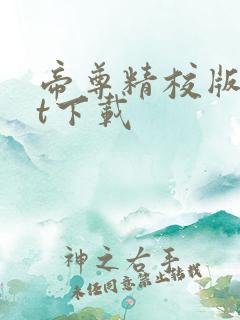 帝尊精校版
t下载
神之右手
未经同意禁止转载